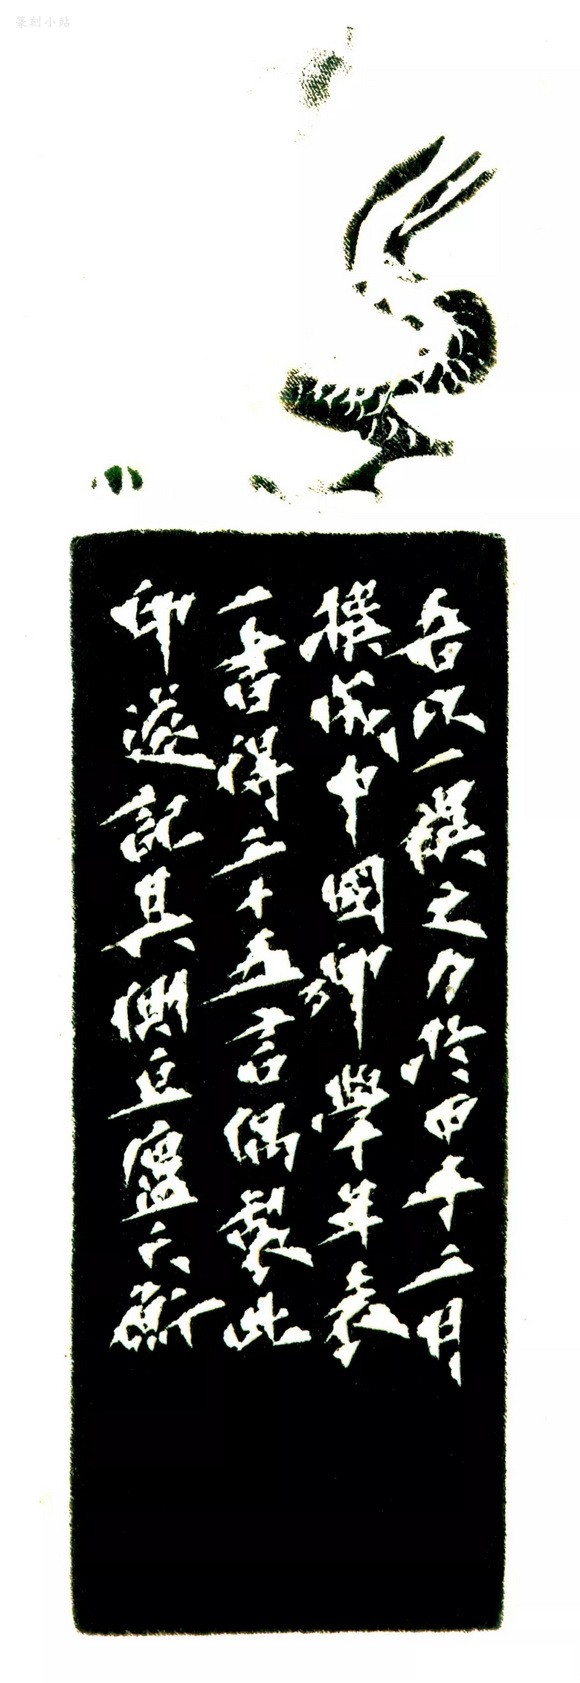 篆刻小站
吾以一之力於甲午二月
撰成中國印學年表
一書得二十五万言偶製此
印遂記其側豆廬天衡